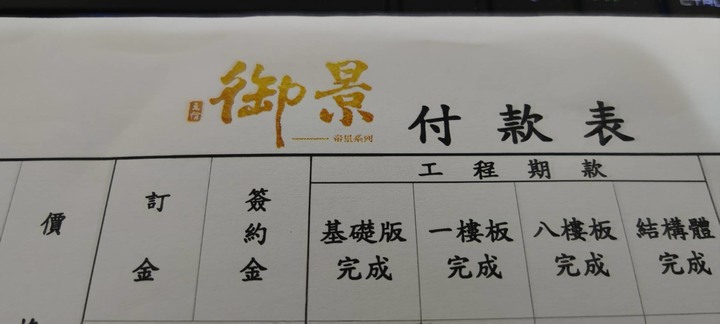 御景
帝景系列
付款表
價
訂金
簽約金
工程期款
基礎版完成
一樓板完成
八樓板完成
結構體完成